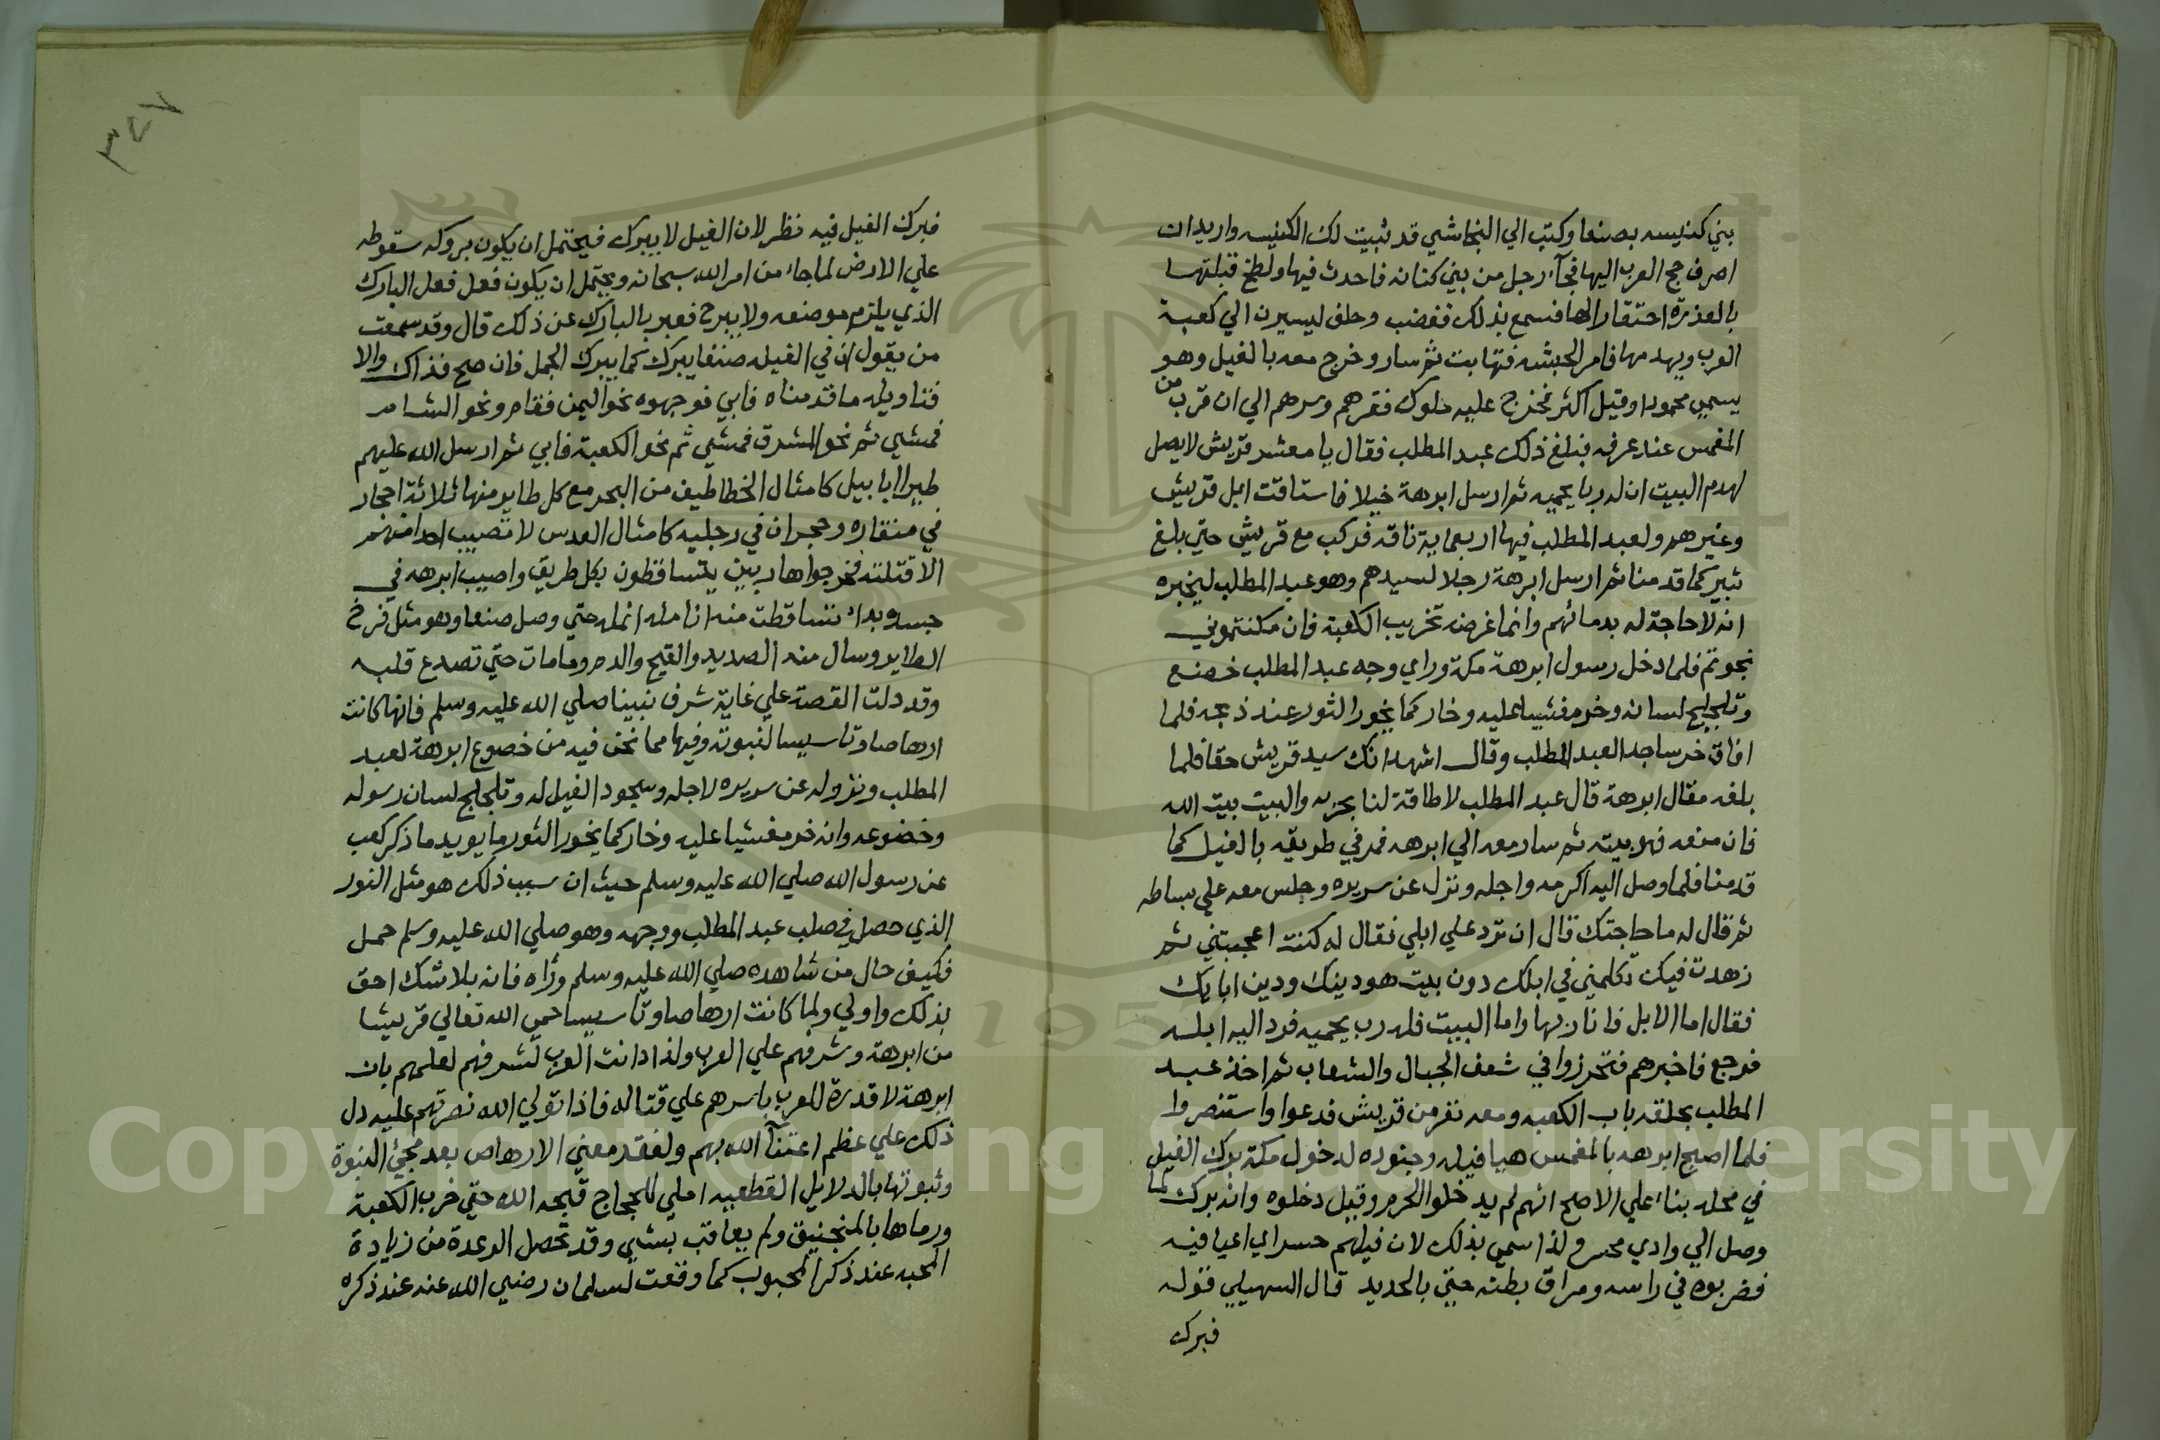 بني كنيسه بصنعا وكتب الي النجاشي قد بنيت لك الكنيسه واريد ان
اصرف حج العرب اليها فجآء رجل من بني كنانه فاحدث فيها ولطخ قبلتها
بالعذرة احتقارا لها فسمع بذلك فغضب وحلف ليسيرن الي كعبة
العرب ويهدمها فامر الحبشه فتهابت ثم سار وخرج معه بالفيل وهو
يسمي محمودا وقيل اكثر فخرج عليه ملوك فقرهم وسرهم الي ان قرب من
المغمس عند عرفه فبلغ ذلك عبد المطلب فقال يا معشر قريش لا يصل
لهدم البيت ان له ربا يحميه ثم ارسل ابرهة خيلا فاستاقت ابل قريش
وغيرهم ولعبد المطلب فيها اربعماية ناقه فركب مع قريش حتي بلغ
ثبير كما قدمنا ثم ارسل ابرهة رجلا لسيدهم وهو عبد المطلب ليخبره
انه لا حاجة له بدمائهم وانما غرضه تخريب الكعبة فان مكنتموني
نجوتم فلما دخل رسول ابرهة مكة وراي وجه عبد المطلب خضع
وتلجلج لسانه وخر مغشيا عليه وخار كما يخور الثور عند ذبحه فلما
افاق خر ساجدا لعبد المطلب وقال اشهد انك سيد قريش حقا فلما
بلغه مقال ابرهة قال عبد المطلب لا طاقة لنا بحربه والبيت بيت الله
فان منعه فهو بيته ثم سار معه الي ابرهه فمر في طريقه بالفيل كما
قدمنا فلما وصل اليه اكرمه واجله ونزل عن سريره وجلس معه علي بساطه
ثم قال له ما حاجتك قال ان ترد علي ابلي فقال له كنت اعجبتني ثم
زهدت فيك تكلمني في ابلك دون بيت هو دينك ودين ابايك
فقال اما الابل فانا ربها واما البيت فله رب يحميه فرد اليه ابله
فرجع فاخبرهم فتحرزوا في شعف الجبال والشعاب ثم اخذ عبد
المطلب بحلقه باب الكعبه ومعه نفر من قريش فدعوا واستنصروا
فلما اصبح ابرهه بالمغمس هيا فيله وجنوده لدخول مكة برك الفيل
في محله بناء علي الاصح انهم لم يدخلوا الحرم وقيل دخلوه وانه برك لما
وصل الي وادي محسر ولذا سمي بذلك لان فيلهم حسر اي اعيا فيه
فضربوه في راسه ومراق بطنه حتي بالحديد قال السهيلي قوله
فبرك
٣٤٧
فبرك الفيل فيه نظر لان الفيل لا يبرك فيحتمل ان يكون بروكه سقوطه
علي الارض لما جاء من امر الله سبحانه ويحتمل ان يكون فعل فعل البارك
الذي يلزم موضعه ولا يبرح فعبر بالبارك عن ذلك قال وقد سمعت
من يقول ان في الفيله صنفا يبرك كما يبرك الجمل فان صح فذاك والا
فتاويله ما قدمناه فابي فوجهوه نحو اليمن فقام ونحو الشام
فمشي ثم نحو المشرق فمشي ثم نحو الكعبة فابي ثم ارسل الله عليهم
طيرا ابابيل كامثال الخطاطيف من البحر مع كل طاير منها ثلاثة احجار
في منقاره وحجران في رجليه كامثال العدس لا تصيب احدا منهم
الا قتلته فخرجوا هاربين يتساقطون بكل طريق واصيب ابرهه في
جسده بداء تتساقطت منه انامله انمله حتي وصل صنعا وهو مثل فرخ
الطاير وسال منه الصديد والقيح والدم وما مات حتي تصدع قلبه
وقد دلت القصة علي غاية شرف نبينا صلي الله عليه وسلم فانها كانت
ارهاصا وتاسيسا لنبوته وفيها مما نحن فيه من خضوع ابرهة لعبد
المطلب ونزوله عن سريره لاجله وسجود الفيل له وتلجلج لسان رسوله
وخضوعه وانه خر مغشيا عليه وخار كما يخور الثور ما يويد ما ذكر كعب
عن رسول الله صلي الله عليه وسلم حيث ان سبب ذلك هو مثل النور
الذي حصل في صلب عبد المطلب ووجهه وهو صلي الله عليه وسلم حمل
فكيف حال من شاهده صلي الله عليه وسلم ورآه فانه بلا شك احق
بذلك واولي ولما كانت ارهاصا وتاسيسا حمي الله تعالي قريشا
من ابرهة وشرفهم علي العرب ولذا دانت العرب لشرفهم لعلمهم بان
ابرهة لا قدرة للعرب باسرهم علي قتاله فاذا تولي الله نصرتهم عليه دل
ذلك علي عظم اعتنآء الله بهم ولفقد معني الارهاص بعد مجئ النبوة
وثبوتها بالدلايل القطعيه املي للحجاج قبحه الله حتي خرب الكعبة
ورماها بالمنجنيق ولم يعاقب بشي وقد تحصل الرعدة من زيادة
المحبه عند ذكر المحبوب كما وقعت لسلمان رضي الله عنه عند ذكره
Copyright © King Saud University
1957